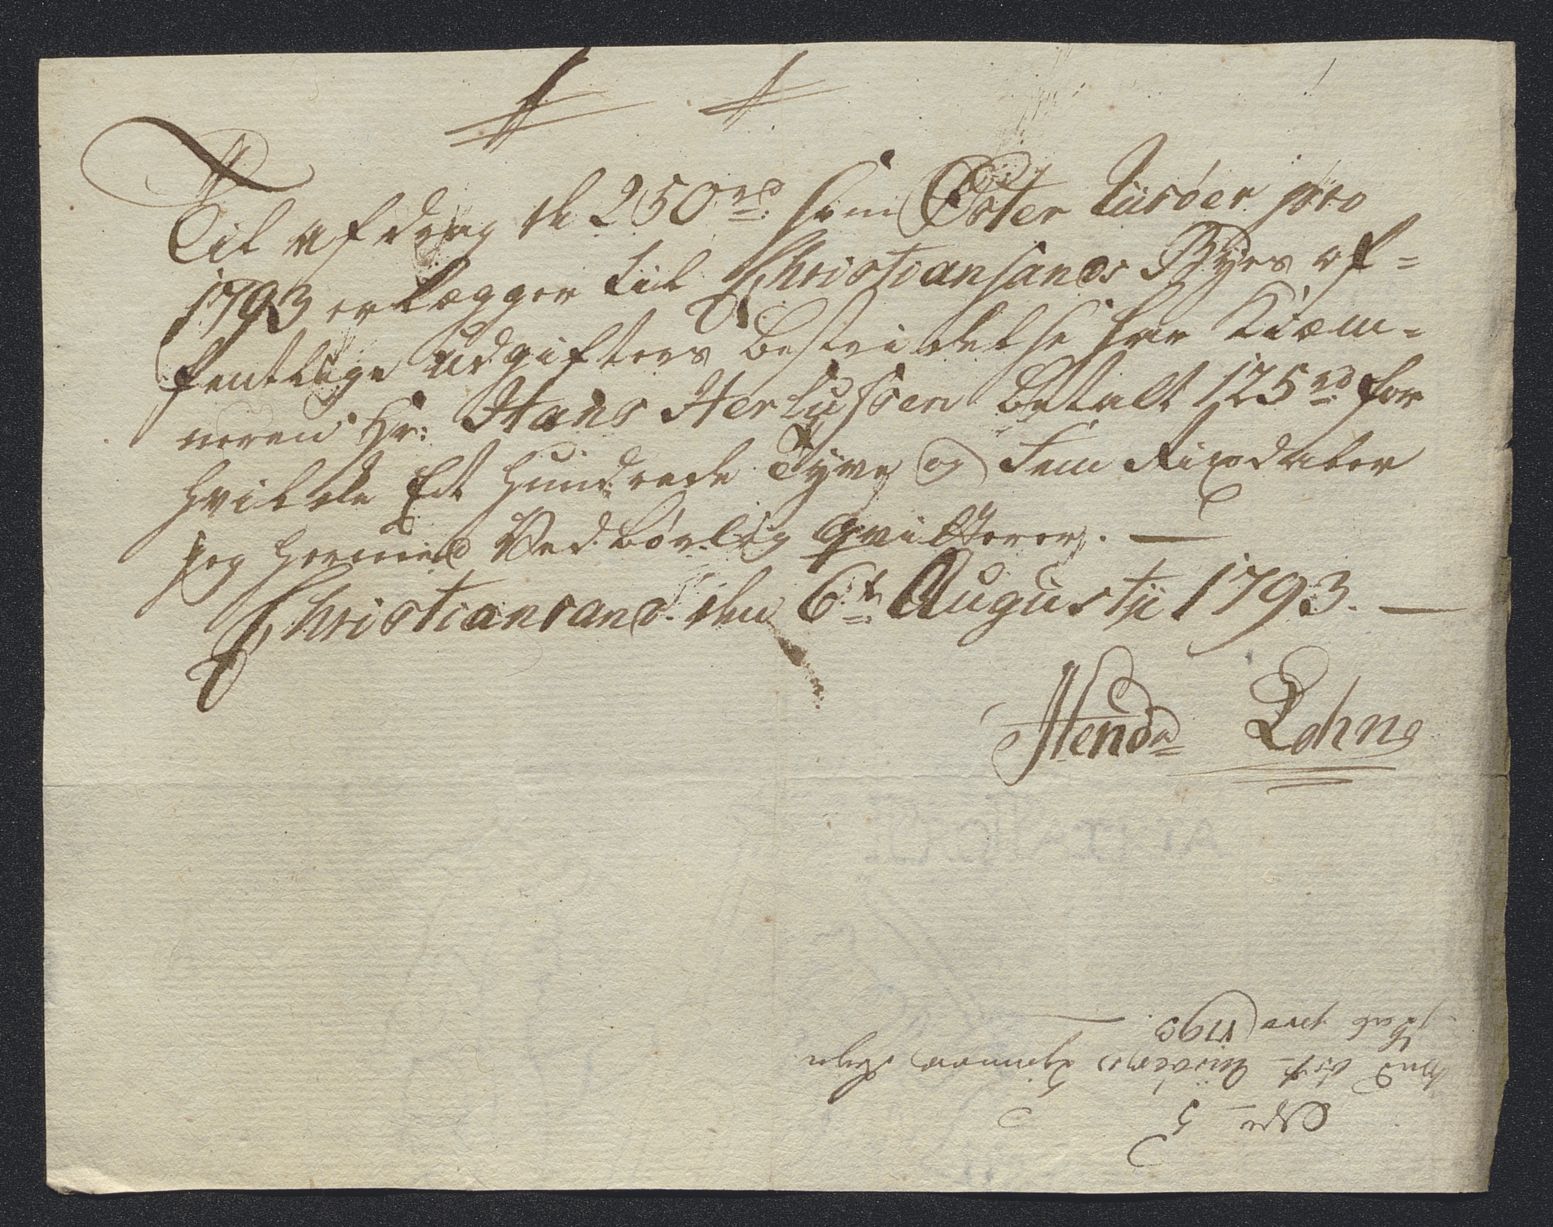 Til afdrag de 250 rd som Öster Riisöer pro
1793 erlægger til Christiansands Byes of=
fentlige udgifters bestridelse har Kiæm=
neren Hr: Hans Herlussen betalt 125 rd for
hvilcke Et hundrede Tyve og Fem Rixdaler
jeg hermed Vedbörlig qvitterer. —
Christiansand den 6te Augustii 1793. —
Lohne
No 5
1793